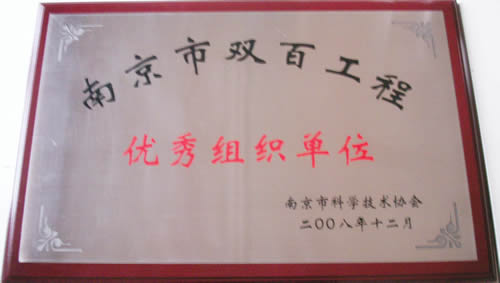 南京市双百工程
优秀组织单位
南京市科学技术协会
二〇〇八年十二月